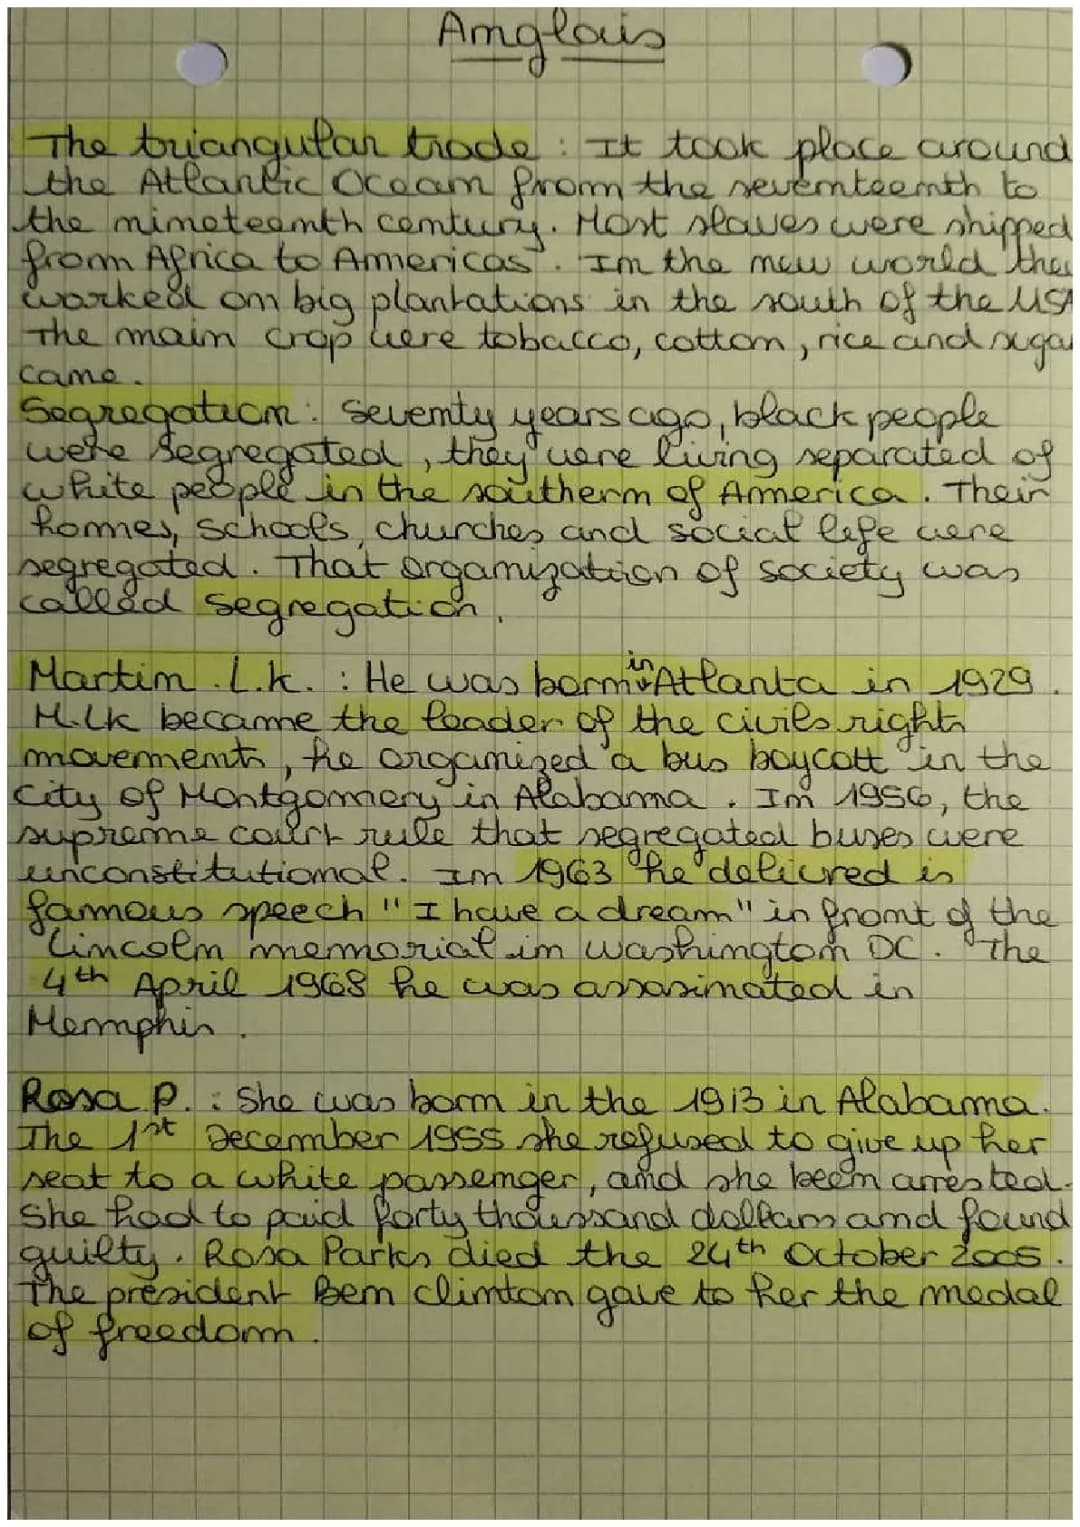 Anglais
The triangular trade : It took place around
the Atlantic Ocean from the seventeenth to
the nineteenth century. Most slaves were shipped
from Africa to Americas. In the new world the
worked on big plantations in the south of the USA
The main crop were tobacco, cotton, rice and suga
cane.
Segregation : Seventy years ago, black people
were segregated, they were living separated of
white people in the southern of America. Their
homes, schools, churches and social life were
segregated. That organization of society was
called segregation.
Martin L.k. : He was born in Atlanta in 1929.
M.lk became the leader of the civils rights
movements, he organized a bus boycott in the
city of Montgomery in Alabama. In 1956, the
supreme court rule that segregated buses were
unconstitutional. In 1963 he delicred is
famous speech "I have a dream" in front of the
Lincoln memorial in washington DC. The
4th April 1968 he was assasinated in
Memphis.
Rosa P. : She was born in the 1913 in Alabama.
The 1st December 1955 she refused to give up her
seat to a white passenger, and she been arrested.
She had to paid forty thoussand dollars and found
guilty. Rosa Parks died the 24th October 2005.
The president Ben clinton gave to her the medal
of freedom.